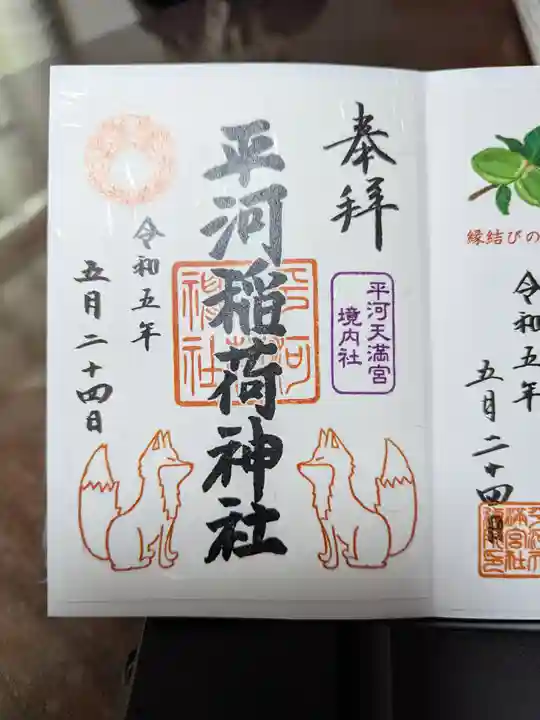 奉拝
平河天満宮
境内社
平河稲荷神社
令和五年
五月二十四日
縁結びの
令和五年
五月二十四日